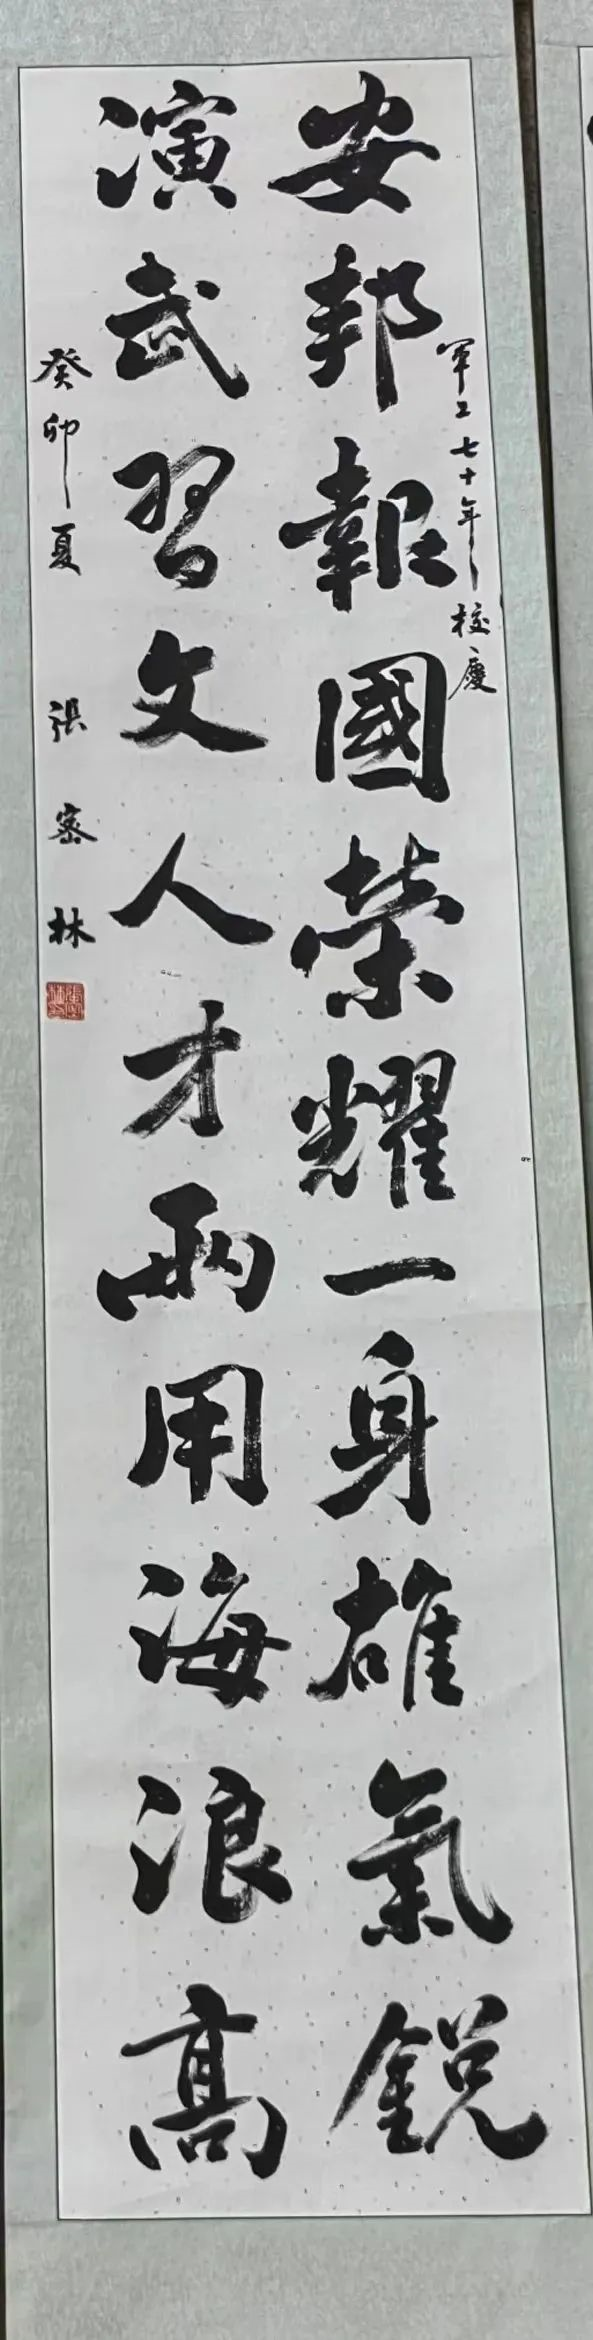 軍工七十年校慶
安邦報國榮耀一身雄氣銳
演武習文人才兩用海浪高
癸卯夏 張密林